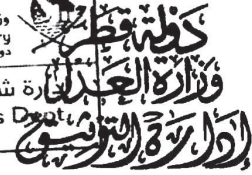 دولة قطر
وزارة العدل
إدارة التوثيق
s Dept.